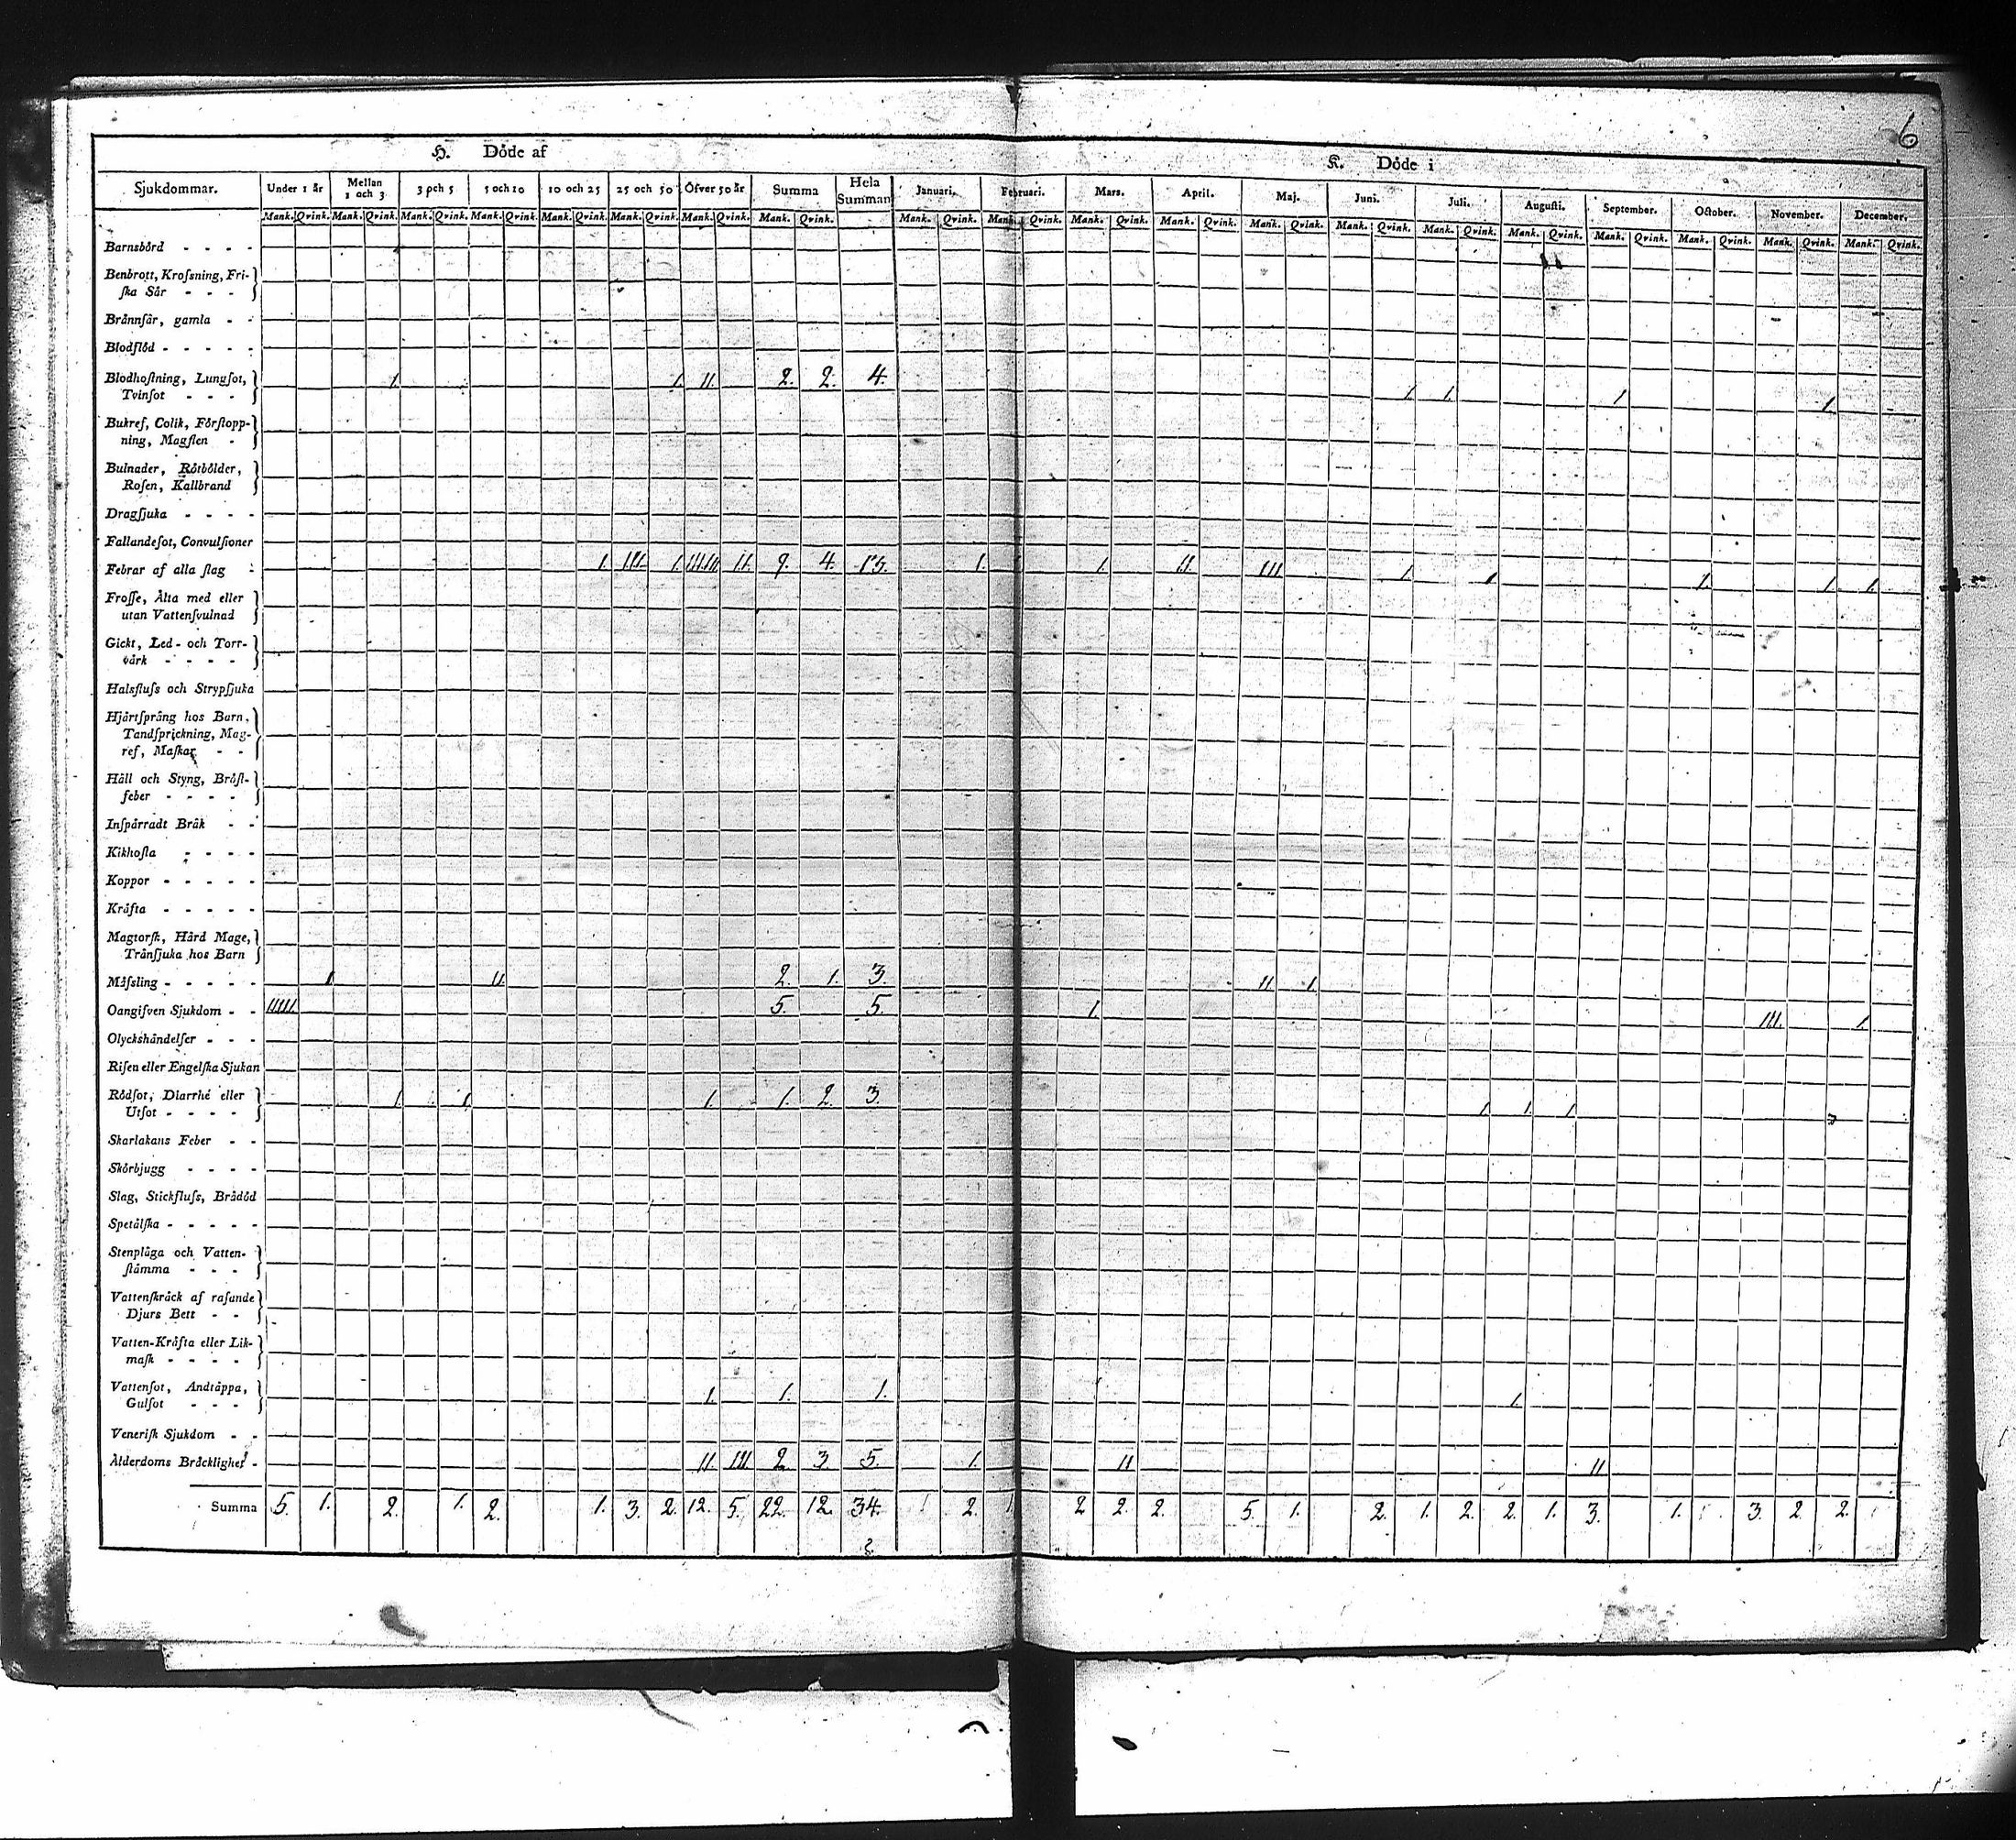 6
H. Döde af
K. Döde i
Sjukdommar. Under 1 år Mellan 1 och 3 3 och 5 5 och 10 10 och 25 25 och 50 Öfver 50 år Summa Hela Summan Januari. Februari. Mars. April. Maj. Juni. Julí. Augusti. September. October. November. December.
Mank. Qvink. Mank. Qvink. Mank. Qvink. Mank. Qvink. Mank. Qvink. Mank. Qvink. Mank. Qvink. Mank. Qvink. Mank. Qvink. Mank. Qvink. Mank. Qvink. Mank. Qvink. Mank. Qvink. Mank. Qvink. Mank. Qvink. Mank. Qvink. Mank. Qvink. Mank. Qvink. Mank. Qvink. Mank. Qvink.
Barnsbörd - - - -
Benbrott, Krofsning, Fri-
ſka Sår - - -
Brånnſår, gamla - -
Blodflöd - - - - -
Blodhoſtning, Lungſot, 1. 1. 11. 2. 2. 4.
Tvinſot - - - 1. 1. 1 1.
Bukref, Colik, Förſtopp-
ning, Magſten -
Bulnader, Rötbölder,
Roſen, Kallbrand
Dragſjuka - - - -
Fallandeſot, Convulſioner
Febrar af alla ſlag - 1. 111. 1. 111111 11. 9. 4. 13. 1. 1. 11. 111. 1. 1 1. 1 1.
Froſſe, Ålta med eller
utan Vattenſvulnad
Gickt, Led- och Torr-
vårk - - - -
Halsfluſs och Strypſjuka
Hjärtſprång hos Barn,
Tandſprickning, Mag-
ref, Maſkar - -
Håll och Styng, Bröſt-
feber - - - -
Inſpårradt Bråk - -
Kikhoſta - - - -
Koppor - - - - -
Kråfta - - - - -
Magtorſk, Hård Mage,
Trånſjuka hos Barn
Måſsling - - - - - 1 11. 2. 1. 3. 11 1.
Oangifven Sjukdom - - 11111. 5. 5. 1. 111. 1.
Olyckshåndelſer - - -
Riſen eller Engelſka Sjukan
Rödſot, Diarrhé eller 1. 1. 1. 1. 2. 3.
Utſot - - - - 1 1. 1
Skarlakans Feber - -
Skörbjugg - - - -
Slag, Stickfluſs, Brådöd
Spetålſka - - - - -
Stenplåga och Vatten-
ſtåmma - - -
Vattenſkråck af raſande
Djurs Bett - -
Vatten-Kråfta eller Lik-
maſk - - - -
Vattenſot, Andtåppa, 1. 1. 1.
Gulſot - - - 1.
Veneriſk Sjukdom - -
Ålderdoms Bråcklighet - 11. 111. 2. 3. 5. 1. 11 11
Summa 5. 1. 2. 1. 2. 1. 3. 2. 12. 5. 22. 12. 34. 2. 2 2. 2. 5. 1. 2. 1. 2. 2. 1. 3. 1. 3. 2. 2.